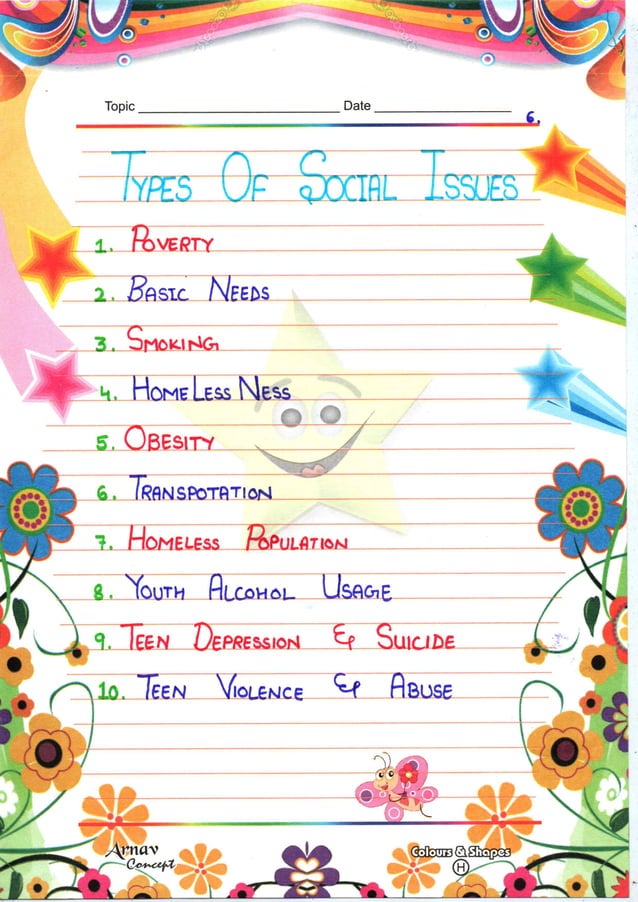 Topic Date
6.
TYPES OF SOCIAL ISSUES
1. POVERTY
2. BASIC NEEDS
3. SMOKING
4. HOMELESS NESS
5. OBESITY
6. TRANSPOTATION
7. HOMELESS POPULATION
8. YOUTH ALCOHOL USAGE
9. TEEN DEPRESSION & SUICIDE
10. TEEN VIOLENCE & ABUSE
Arnav Colours & Shapes
Concept H